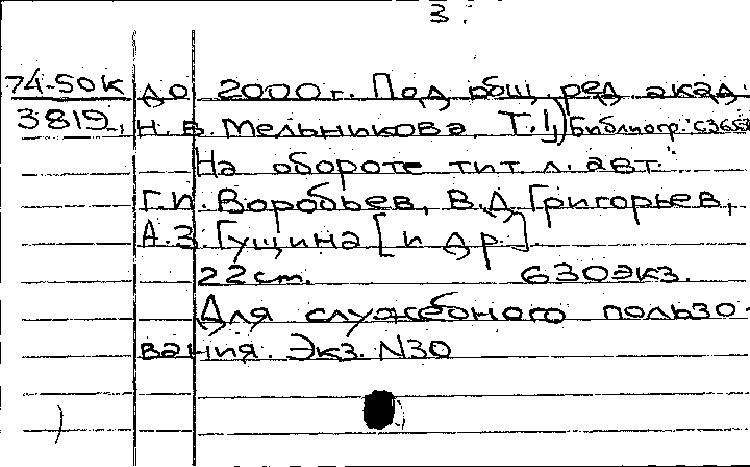 3.
74-50к до 2000 г. Под общ. ред. акад.
3819 Н. В. Мельникова, Т. I, Библиогр.: с 365
"На обороте тит. л. авт.:
Г.П. Воробьев, В.Д. Григорьев,
А.З. Гущина [и др.].
22 cm. 630 экз.
Для служебного пользо-
вания. Экз. N30